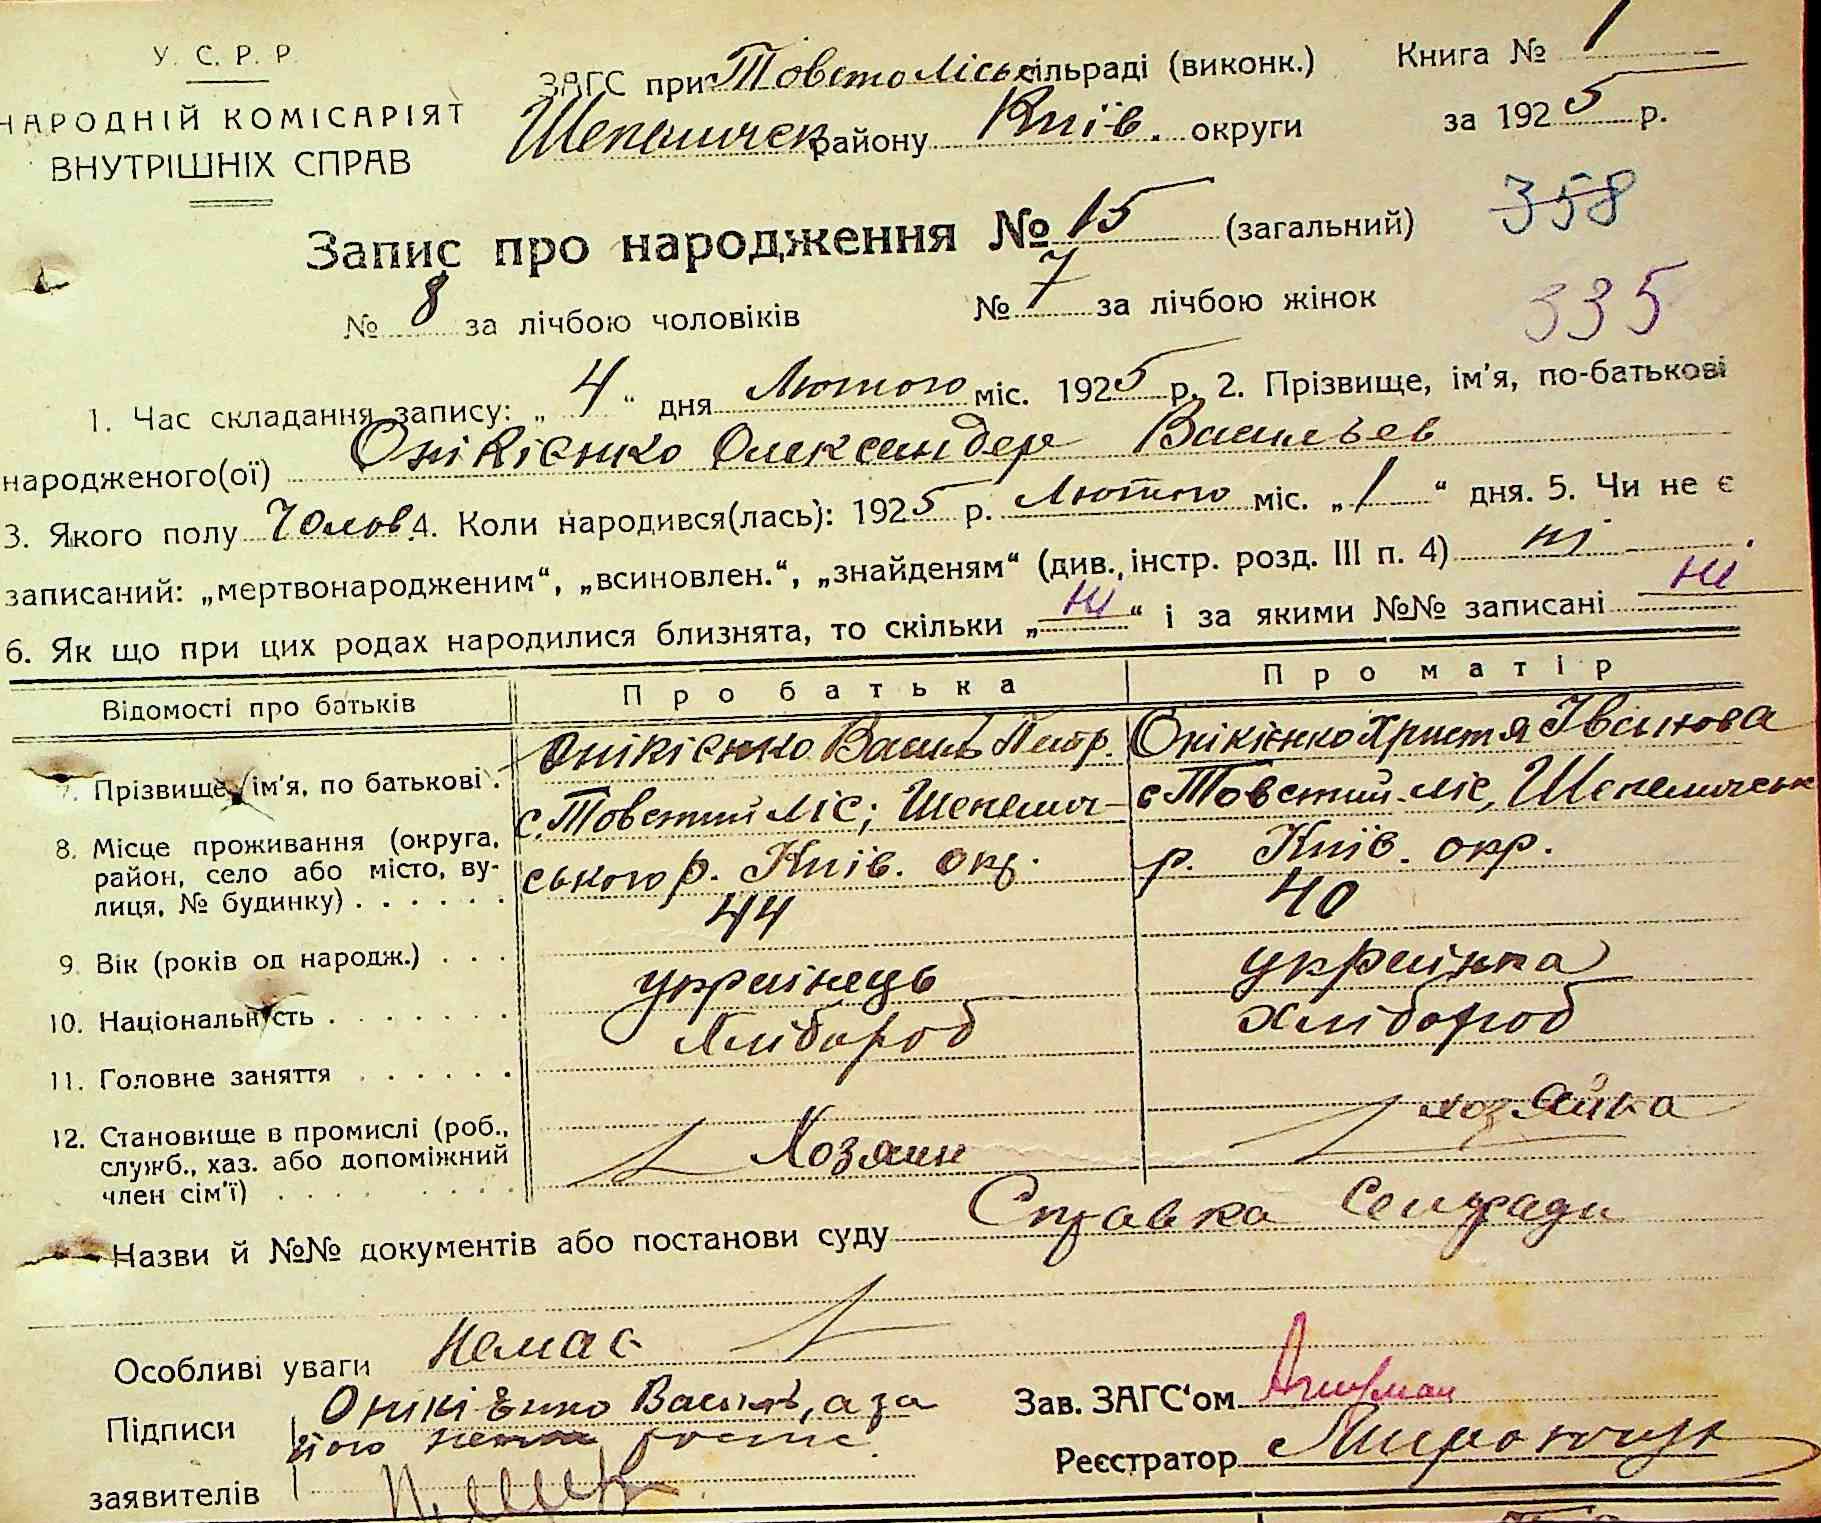 У. С. Р. Р.
НАРОДНІЙ КОМІСАРІЯТ
ВНУТРІШНІХ СПРАВ
ЗАГС при Товстоліськ сільраді (виконк.)
Шепелич району Київ. округи
Книга № 1
за 1925 р.
Запис про народження № 15 (загальний)
358
№ 8 за лічбою чоловіків № 7 за лічбою жінок
335
1. Час складання запису: „4“ дня Лютого міс. 1925 р. 2. Прізвище, ім'я, по-батькові
народженого(ої) Онікієнко Олександер Васильев
3. Якого полу Чолов. 4. Коли народився(лась): 1925 р. Лютого міс. „1“ дня. 5. Чи не є
записаний: „мертвонародженим“, „всиновлен.“, „знайденям“ (див. інстр. розд. III п. 4) ні
6. Як що при цих родах народилися близнята, то скільки „ні“ і за якими №№ записані ні
Відомості про батьків Про батька Про матір
7. Прізвище, ім'я, по батькові. Онікієнко Василь Петр. Онікієнко Христя Івсікова
8. Місце проживання (округа, район, село або місто, вулиця, № будинку) . . . . . .
с. Товстий ліс; Шепелич-
ського р. Київ. окр.
с Товстий-ліс, Шепеличськ
р. Київ. окр.
9. Вік (років од народж.) . . . 44 40
10. Національність . . . . . . . українець українка
11. Головне заняття . . . . . . Хлібороб хлібороб
12. Становище в промислі (роб., служб., хаз. або допоміжний член сім'ї) . . . . . . . . Хозяин хозяйка
Назви й №№ документів або постанови суду Справка Сельради
Особливі уваги Немає
Підписи
заявителів
Онікієнко Василь, а за
його роспис.
Зав. ЗАГС'ом
Реєстратор